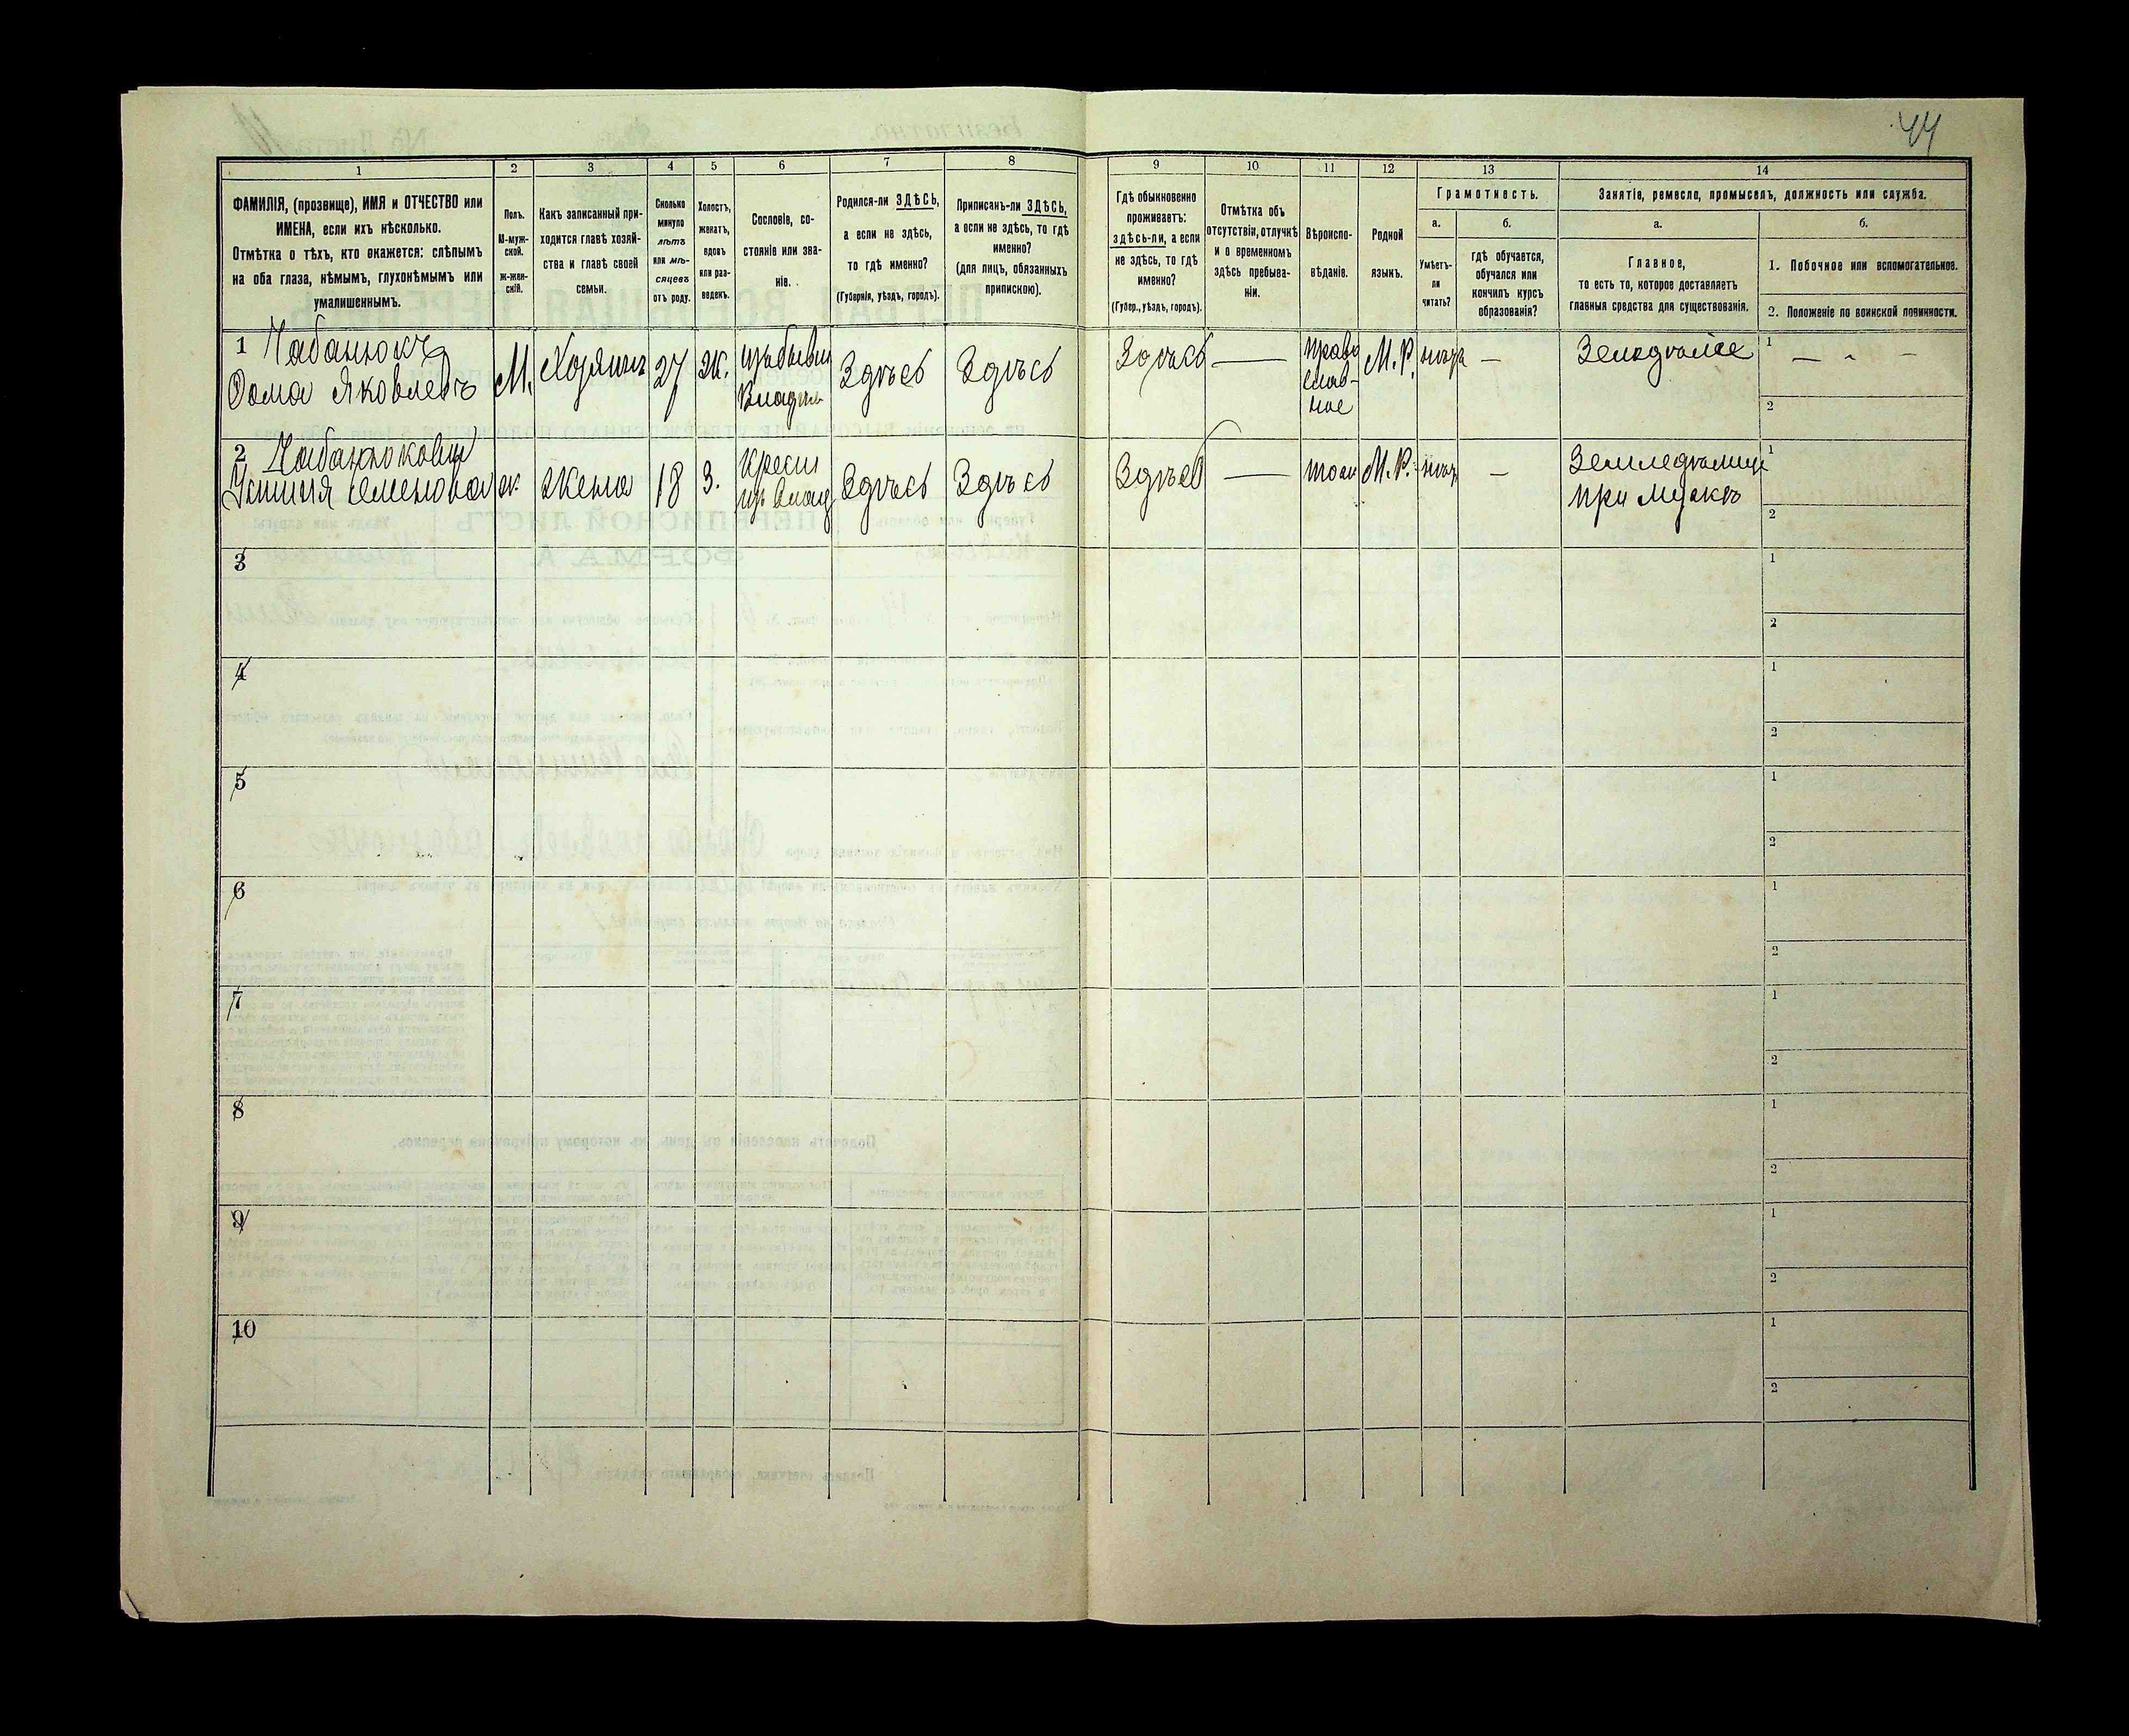 44
1 2 3 4 5 6 7 8 9 10 11 12 13 14
ФАМИЛІЯ, (прозвище), ИМЯ и ОТЧЕСТВО или
ИМЕНА, если ихъ нѣсколько.
Отмѣтка о тѣхъ, кто окажется: слѣпымъ
на оба глаза, нѣмымъ, глухонѣмымъ или
умалишеннымъ.
Полъ.
М-муж-
ской.
ж-жен-
скій.
Какъ записанный при-
ходится главѣ хозяй-
ства и главѣ своей
семьи.
Сколько
минуло
лѣтъ
или мѣ-
сяцевъ
отъ роду.
Холостъ,
женатъ,
вдовъ
или раз-
веденъ.
Сословіе, со-
стояніе или зва-
ніе.
Родился-ли ЗДѢСЬ,
а если не здѣсь,
то гдѣ именно?
(Губернія, уѣздъ, городъ).
Приписанъ-ли ЗДѢСЬ,
а если не здѣсь, то гдѣ
именно?
(для лицъ, обязанныхъ
припискою).
Гдѣ обыкновенно
проживаетъ:
здѣсь-ли, а если
не здѣсь, то гдѣ
именно?
(Губер., уѣздъ, городъ).
Отмѣтка объ
отсутствіи, отлучкѣ
и о временномъ
здѣсь пребыва-
ніи.
Вѣроиспо-
вѣданіе.
Родной
языкъ.
Грамотность.
а.
Умѣетъ-
ли
читать?
б.
гдѣ обучается,
обучался или
кончилъ курсъ
образованія?
Занятіе, ремесло, промыселъ, должность или служба.
а.
Главное,
то есть то, которое доставляетъ
главныя средства для существованія.
б.
1. Побочное или вспомогательное.
2. Положеніе по воинской повинности.
1 Чабанюкъ
Фома Яковлевъ
М.
Хозяинъ
27
Ж.
Здѣсь
Здѣсь
Здѣсь —
право
слав-
ное
М.Р.
—
1 — - —
2
2 Чабанюкова
Семенова
ж.
Жена
18
З.
Здѣсь
Здѣсь
Здѣсь —
М.Р.
—
1
2
3
1
2
4
1
2
5
1
2
6
1
2
7
1
2
8
1
2
9
1
2
10
1
2